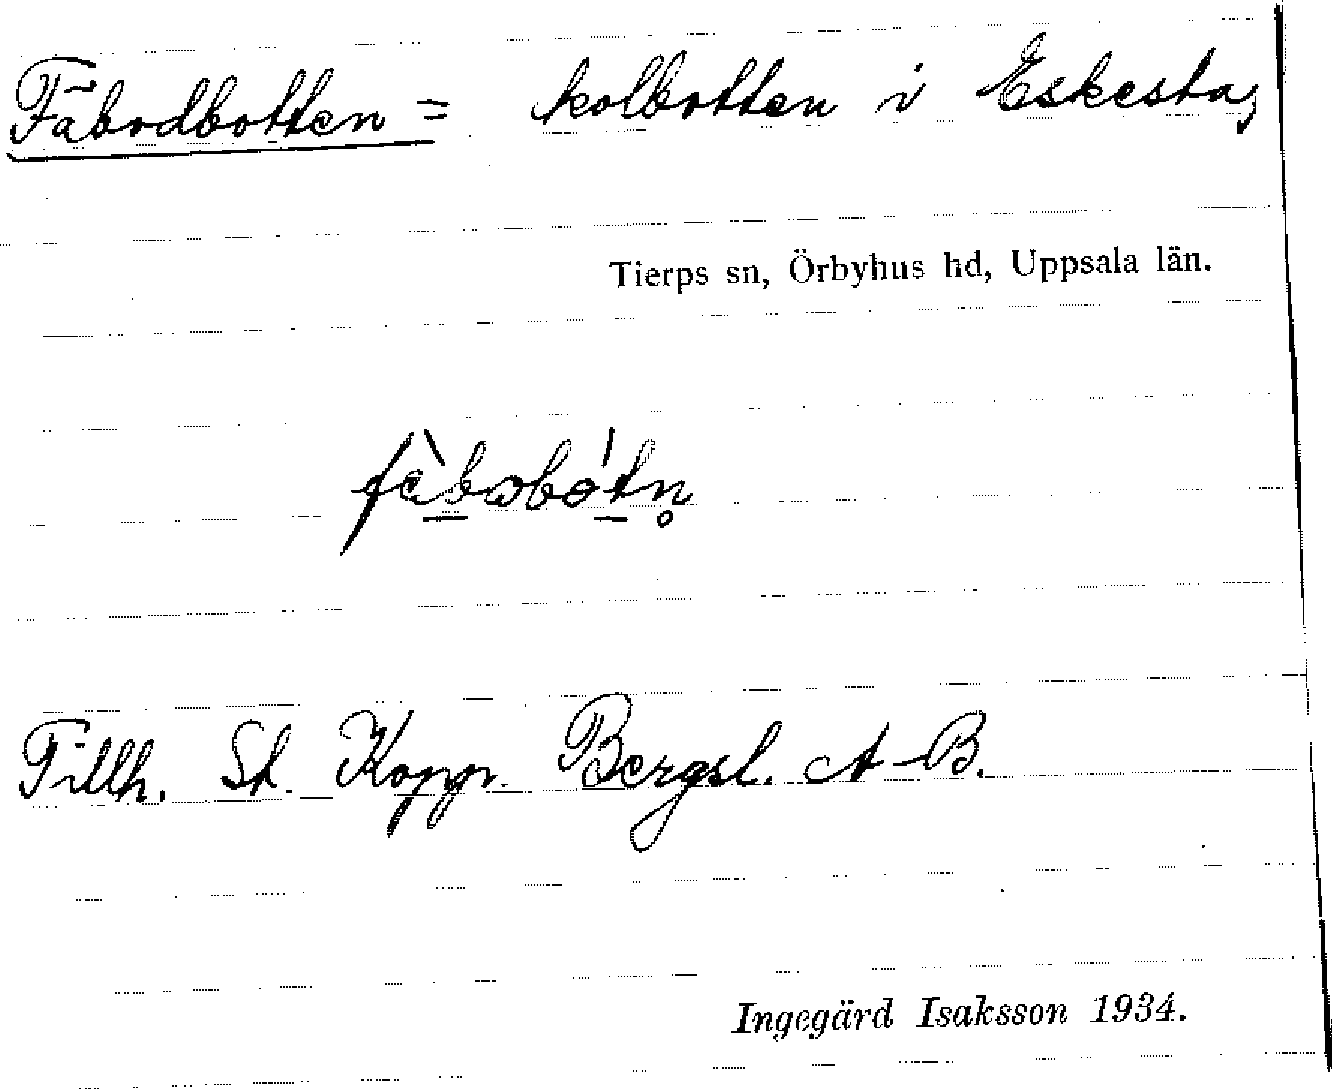 Fäbodbotten = kolbotten i Eskesta,
Tierps sn, Örbyhus hd, Uppsala län.
Tillh. St. Kopp. Bergsl. A-B.
Ingegärd Isaksson 1934.